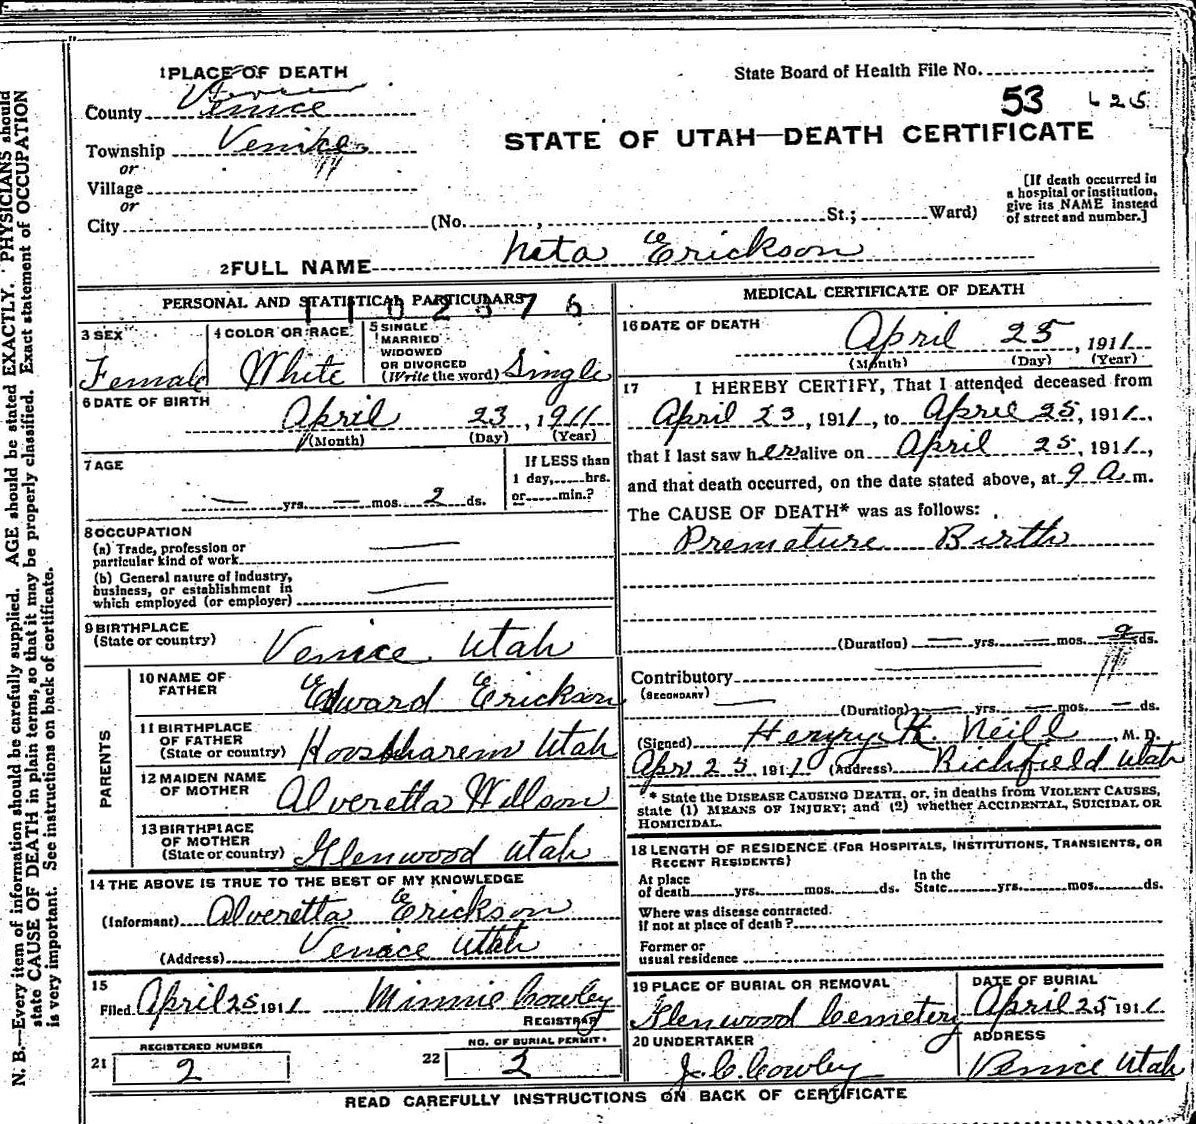 N. B.—Every item of information should be carefully supplied. AGE should be stated EXACTLY. PHYSICIANS should
state CAUSE OF DEATH in plain terms, so that it may be properly classified. Exact statement of OCCUPATION
is very important. See instructions on back of certificate.
1 PLACE OF DEATH
State Board of Health File No.
County Venice
53
Township Venice
STATE OF UTAH—DEATH CERTIFICATE
or
Village
or
City (No. , St.; Ward)
[If death occurred in
a hospital or institution,
give its NAME instead
of street and number.]
2 FULL NAME Neta Erickson
PERSONAL AND STATISTICAL PARTICULARS
3 SEX
Female
4 COLOR OR RACE
White
5 SINGLE
MARRIED
WIDOWED
OR DIVORCED
(Write the word) Single
6 DATE OF BIRTH
April 23, 1911
(Month) (Day) (Year)
7 AGE
— yrs. — mos. 2 ds.
If LESS than
1 day, hrs.
or min.?
8 OCCUPATION
(a) Trade, profession or
particular kind of work —
(b) General nature of industry,
business, or establishment in
which employed (or employer) —
9 BIRTHPLACE
(State or country) Venice Utah
PARENTS
10 NAME OF
FATHER Edward Erickson
11 BIRTHPLACE
OF FATHER
(State or country) Koosharem Utah
12 MAIDEN NAME
OF MOTHER Alveretta Willson
13 BIRTHPLACE
OF MOTHER
(State or country) Glenwood Utah
14 THE ABOVE IS TRUE TO THE BEST OF MY KNOWLEDGE
(Informant) Alveretta Erickson
(Address) Venice Utah
15
Filed April 25 1911 Minnie Cowley
REGISTRAR
21 REGISTERED NUMBER
2
22 NO. OF BURIAL PERMIT
MEDICAL CERTIFICATE OF DEATH
16 DATE OF DEATH
April 25, 1911
(Month) (Day) (Year)
17 I HEREBY CERTIFY, That I attended deceased from
April 23, 1911, to April 25, 1911,
that I last saw her alive on April 25, 1911,
and that death occurred, on the date stated above, at 9 A m.
The CAUSE OF DEATH* was as follows:
Premature Birth
(Duration) — yrs. — mos. ds.
Contributory —
(SECONDARY) —
(Duration) — yrs. — mos. — ds.
(Signed) Henry K. Neill, M. D.
Apr 25 1911 (Address) Richfield Utah
* State the DISEASE CAUSING DEATH, or, in deaths from VIOLENT CAUSES,
state (1) MEANS OF INJURY; and (2) whether ACCIDENTAL, SUICIDAL OR
HOMICIDAL.
18 LENGTH OF RESIDENCE (FOR HOSPITALS, INSTITUTIONS, TRANSIENTS, OR
RECENT RESIDENTS)
At place
of death yrs. mos. ds.
In the
State yrs. mos. ds.
Where was disease contracted.
if not at place of death?
Former or
usual residence
19 PLACE OF BURIAL OR REMOVAL
Glenwood Cemetery
DATE OF BURIAL
April 25 1911
20 UNDERTAKER
J. C. Cowley
ADDRESS
Venice Utah
READ CAREFULLY INSTRUCTIONS ON BACK OF CERTIFICATE